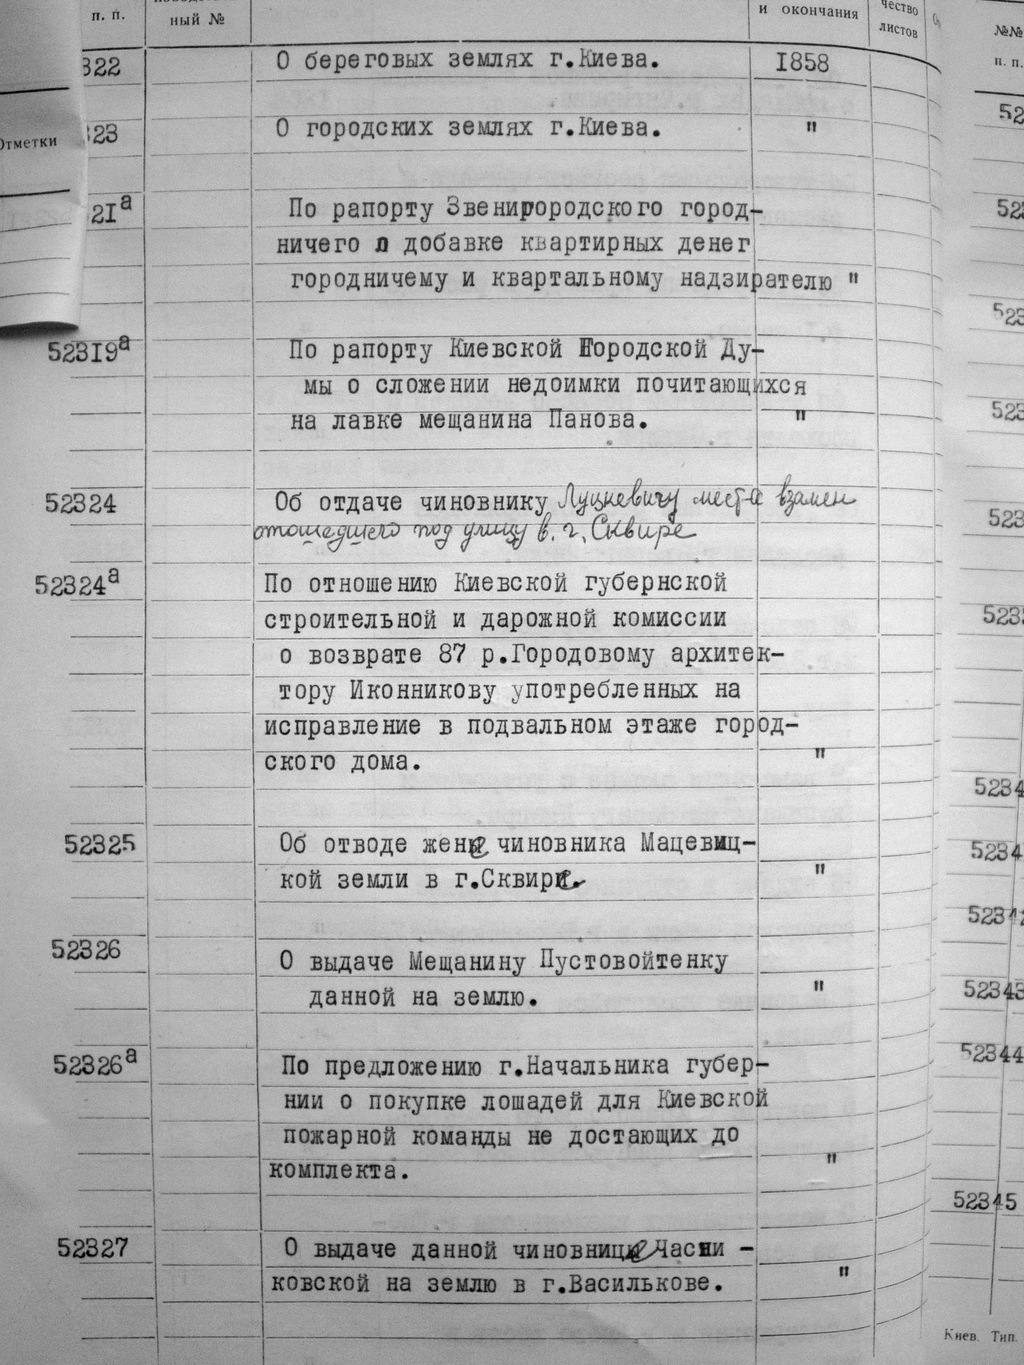 п. п.
ный №
и окончания
чество
листов
№№
п. п.
Отметки
322 О береговых землях г.Киева. 1858
323 О городских землях г.Киева. "
21а По рапорту Звенигородского город-
ничего о добавке квартирных денег
городничему и квартальному надзирателю "
52319а По рапорту Киевской Городской Ду-
мы о сложении недоимки почитающихся
на лавке мещанина Панова. "
52324 Об отдаче чиновнику Луцкевичу места взамен
отошедшего под улицу в. г. Сквире
52324а По отношению Киевской губернской
строительной и дарожной комиссии
о возврате 87 р.Городовому архитек-
тору Иконникову употребленных на
исправление в подвальном этаже город-
ского дома. "
52325 Об отводе жене чиновника Мацевиц-
кой земли в г.Сквире. "
52326 О выдаче Мещанину Пустовойтенку
данной на землю. "
52326а По предложению г.Начальника губер-
нии о покупке лошадей для Киевской
пожарной команды не достающих до
комплекта. "
52327 О выдаче данной чиновнице Часни -
ковской на землю в г.Василькове. "
52
52
523
523
523
523
5234
5234
5234
52343
52344
52345
Киев. Тип.